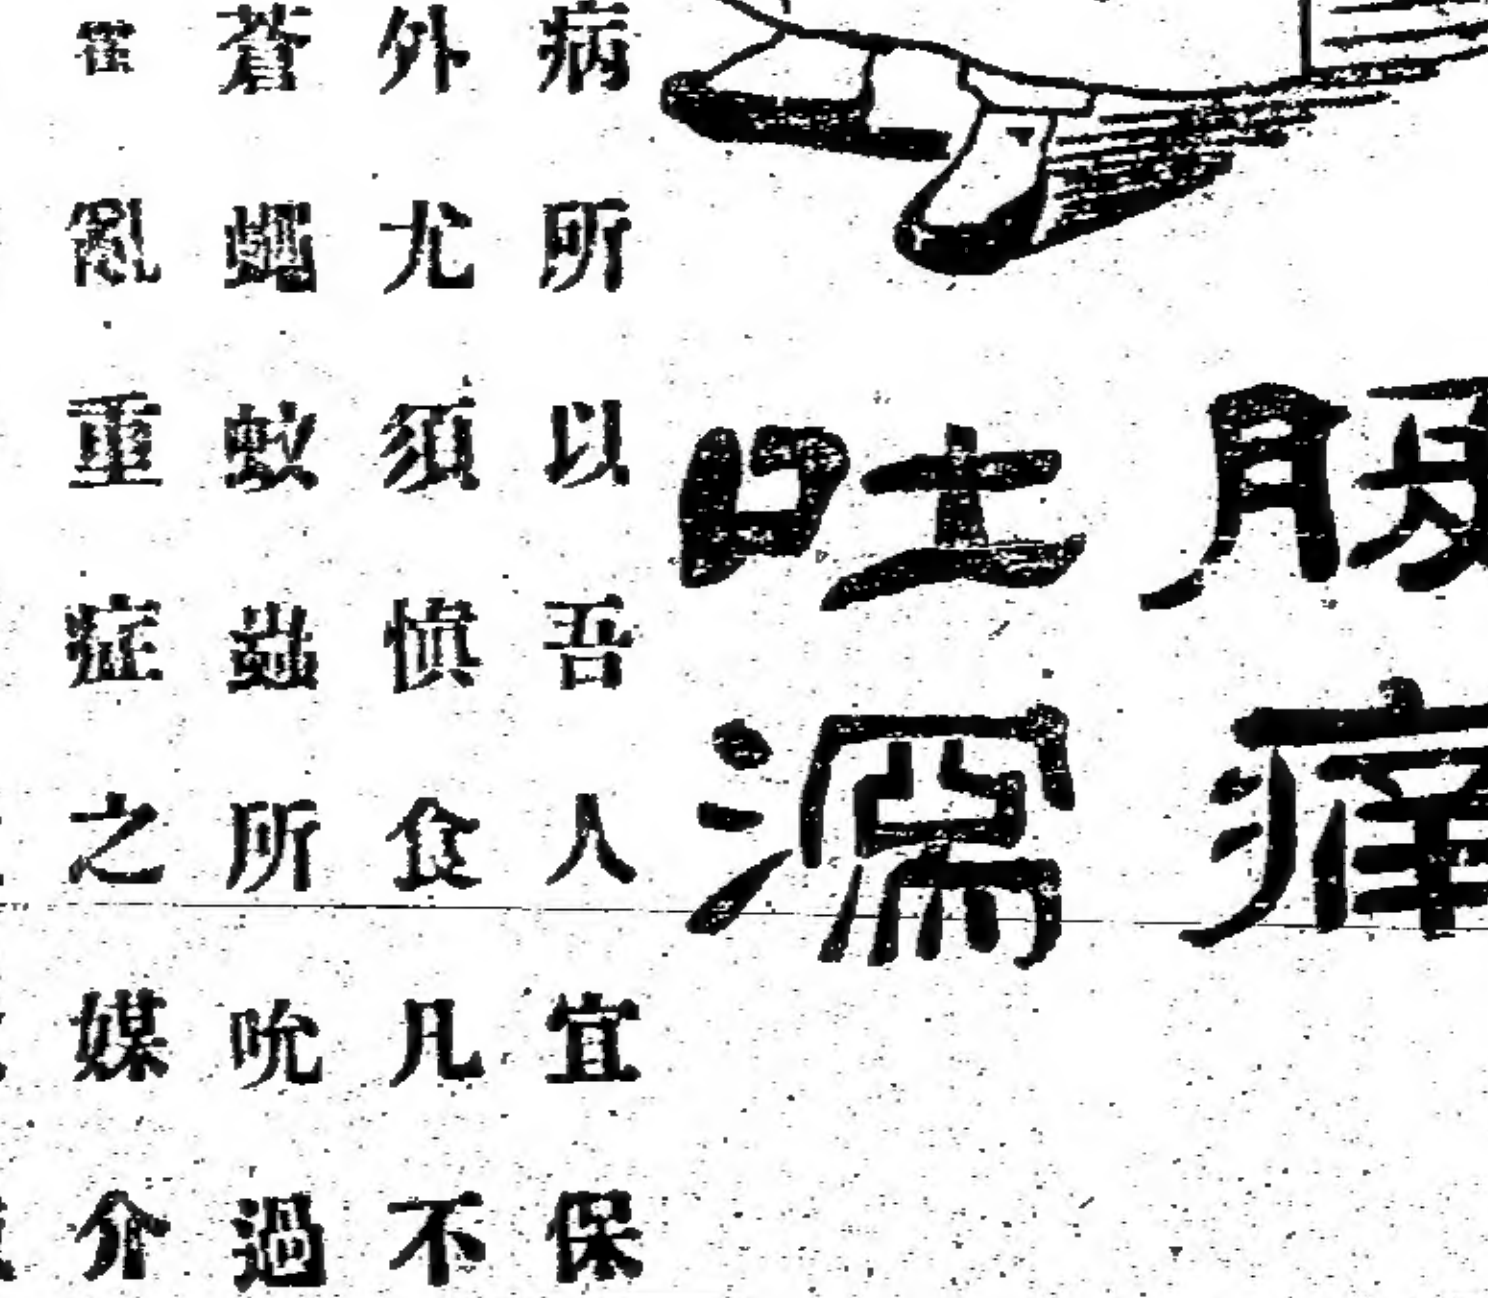 痛
吐瀉
病所以吾人宜保
外尤須慎食凡不
蒼蠅蚊蟲所吮過
亂重症之媒介